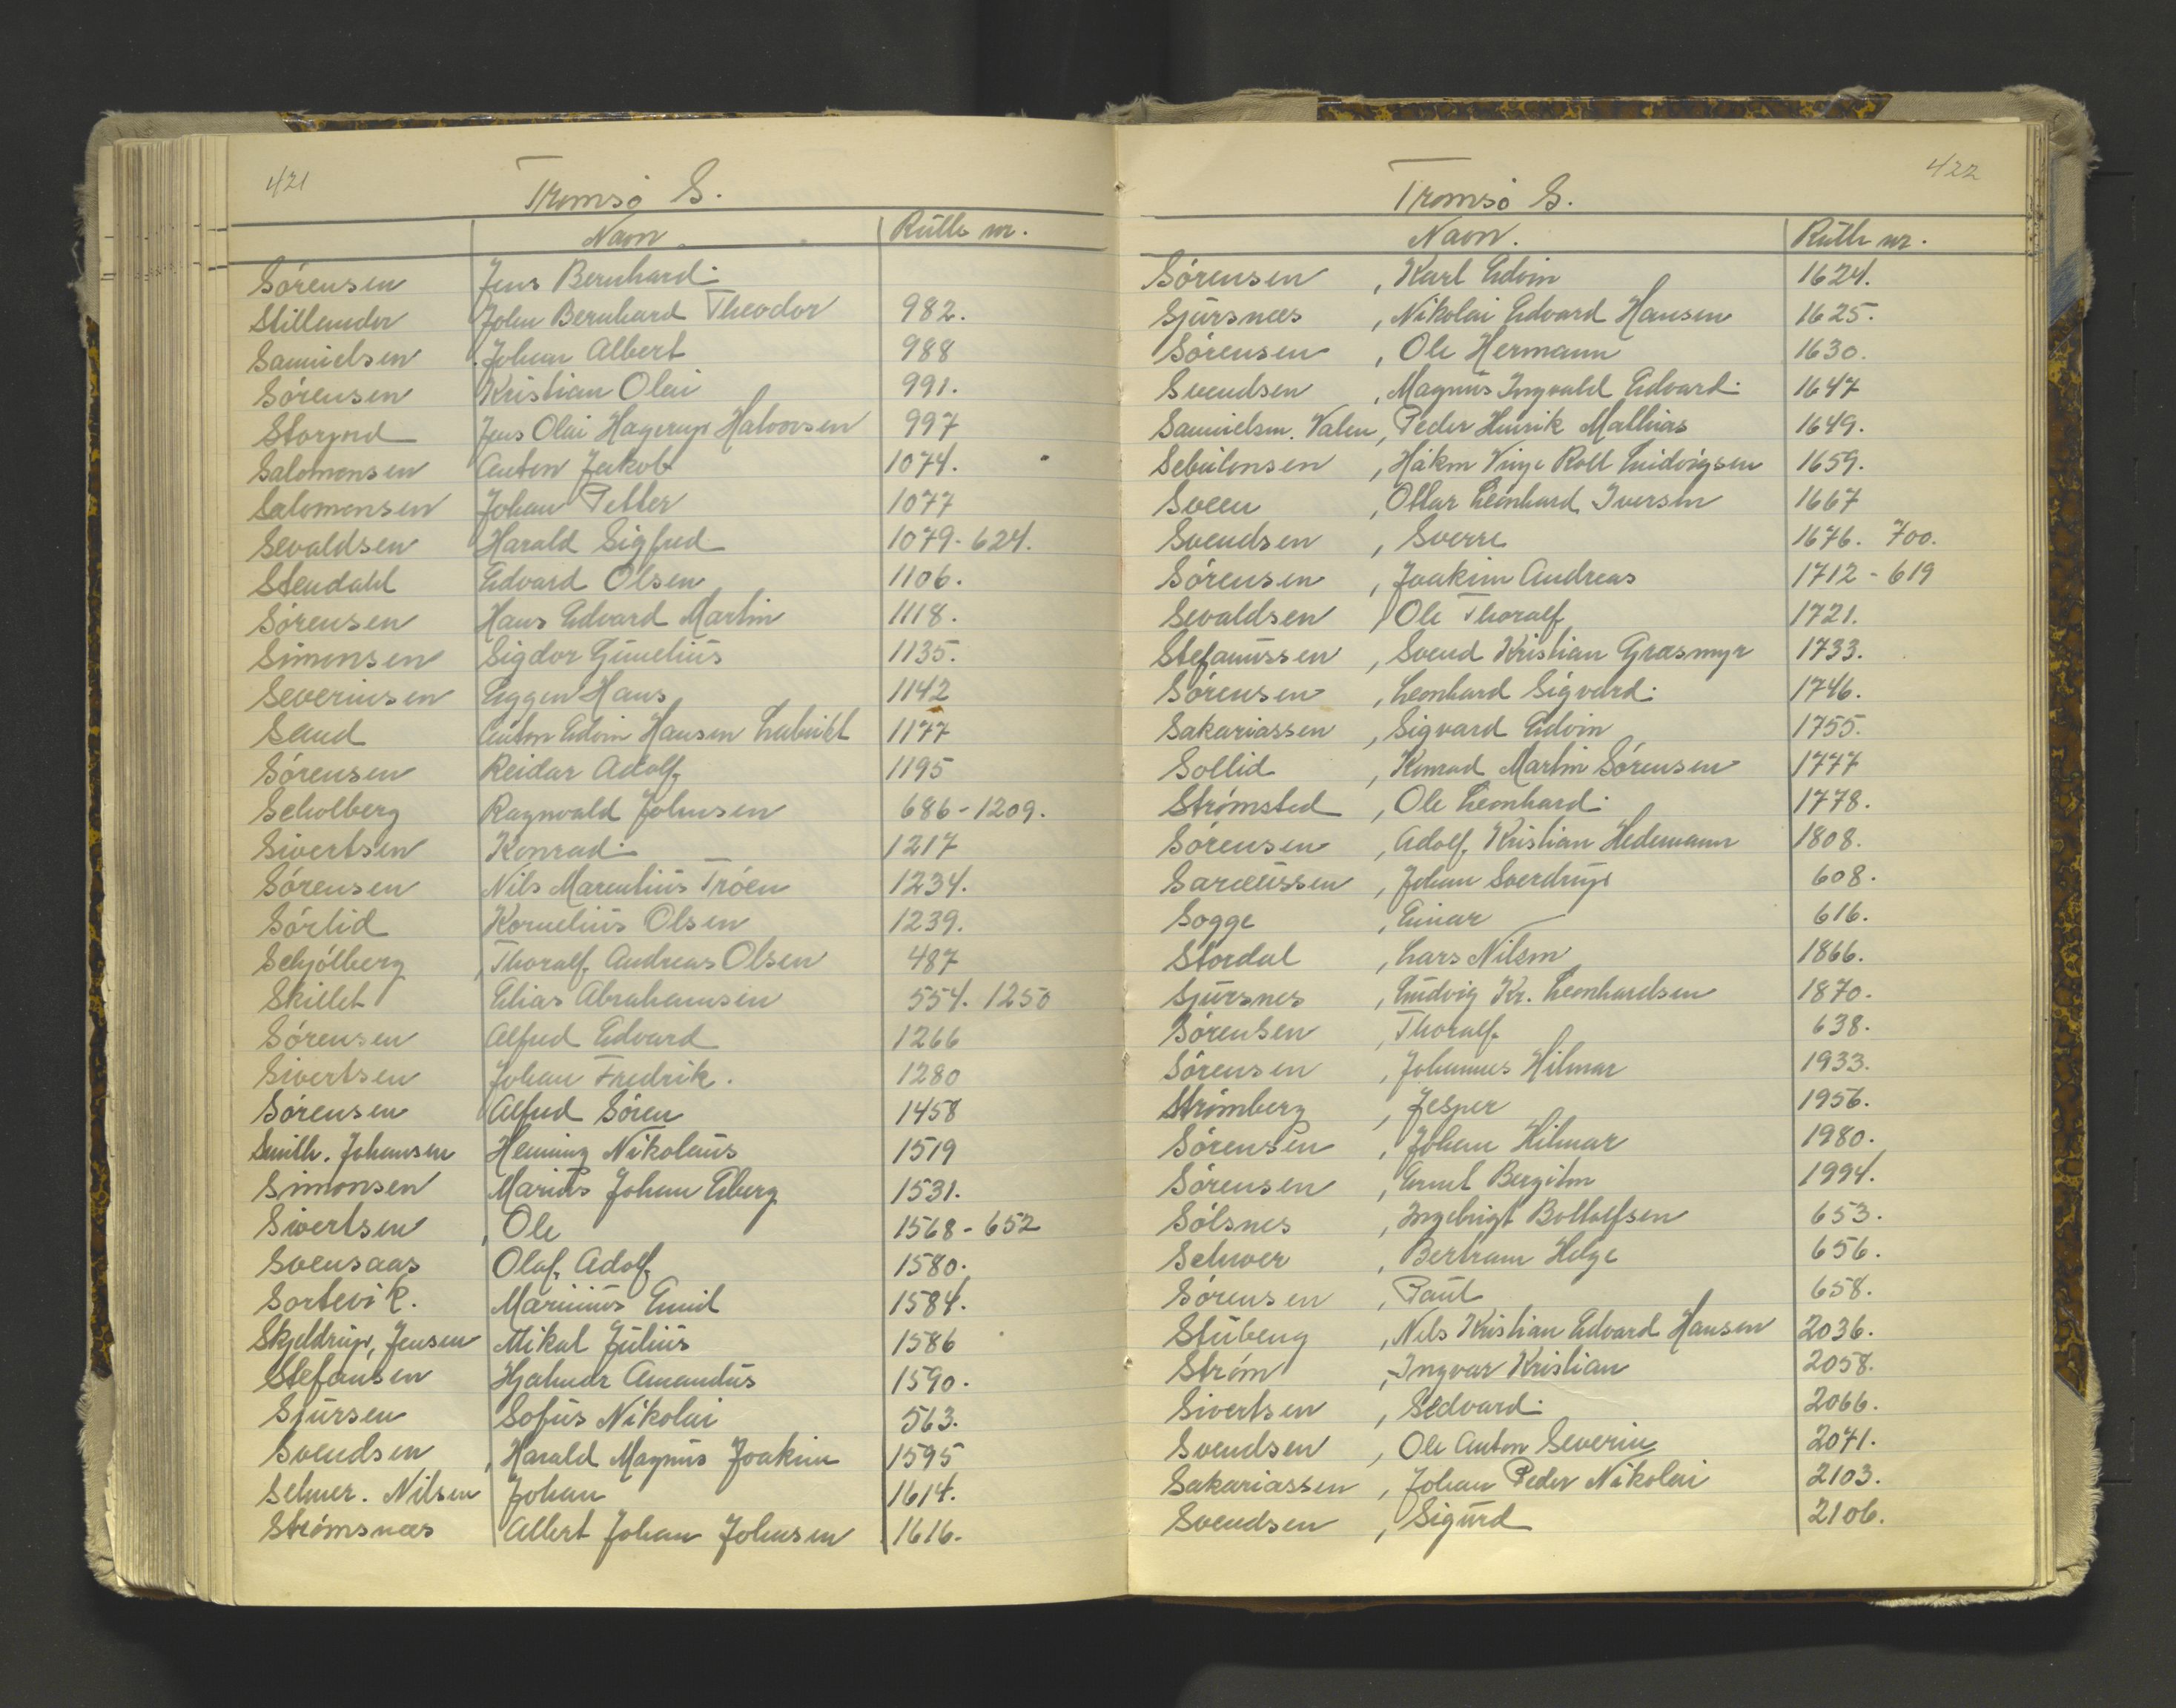 421
Tromsø S.
Navn. Rulle nr.
Sørensen Jens Bernhard.
Stillender John Bernhard Theodor 982.
Samuelsen Johan Albert 988
Sørensen Kristian Olai 991.
Storjord Jens Olai Hagerup Halvorsen 997
Salomonsen Anton Jakob 1074.
Salomonsen Johan Petter 1077
Sevaldsen Harald Sigfred 1079-624.
Stendahl Edvard Olsen 1106.
Sørensen Hans Edvard Martin 1118.
Simonsen Sigdor 1135.
Severinsen Eggen Hans 1142
Sand Anton Edvin Hansen 1177
Sørensen Reidar Adolf 1195
Scholberg Ragnvald Johnsen 686-1209.
Sivertsen Konrad. 1217
Sørensen Nils Marentius Trøen 1234.
Sørlid Kornelius Olsen 1239.
Schjølberg, Thoralf Andreas Olsen 487
Skillet Elias Abrahamsen 554. 1250
Sørensen Alfred Edvard 1266
Sivertsen Johan Fredrik. 1280
Sørensen Alfred Søren 1458
Smith. Johansen Henning Nikolaus 1519
Simonsen Marius Johan Eberg 1531.
Sivertsen, Ole 1568-652
Svensaas Olaf Adolf 1580.
Sortevik. Marinius Emil 1584.
Skjeldrup, Jensen Mikal Julius 1586
Stefansen Hjalmar Amandus 1590.
Sjursen Sofus Nikolai 563.
Svendsen, Harald Magnus Joakim 1595
Selmer. Nilsen Johan 1614.
Strømsnæs Albert Johan Johnsen 1616.
422
Tromsø S.
Navn. Rulle nr.
Sørensen, Karl Edvin 1624.
Sjursnæs, Nikolai Edvard Hansen 1625.
Sørensen, Ole Hermann 1630.
Svendsen, Magnus Ingvald Edvard. 1647
Samuelsen. Valen, Peder Henrik Mathias 1649.
Sebulonsen, Håkon Vinje Roll Ludvigsen 1659.
Sveen, Ottar Leonhard Iversen 1667
Svendsen, Sverre 1676. 700.
Sørensen, Joakim Andreas 1712-619
Sevaldsen, Ole Thoralf 1721.
Stefanussen, Svend Kristian Græsmyr 1733.
Sørensen, Leonhard Sigvard. 1746.
Sakariassen, Sigvard Edvin 1755.
Sollid, Konrad Martin Sørensen 1777
Strømsted, Ole Leonhard. 1778.
Sørensen, Adolf Kristian Hedemann 1808.
Sareussen, Johan Sverdrup 608.
Sogge, Einar 616.
Stordal, Lars Nilsen 1866.
Sjursnes, Ludvig Kr. Leonhardsen 1870.
Sørensen, Thoralf 638.
Sørensen, Johannes Hilmar 1933.
Strømberg, Jesper 1956.
Sørensen, Johan Hilmar 1980.
Sørensen, Ernst Bergiton 1994.
Sølsnes, Ingebrigt Bottolfsen 653.
Schwer, Bertram Helge 656.
Sørensen, Paul 658.
Stubeng, Nils Kristian Edvard Hansen 2036.
Strøm, Ingvar Kristian 2058.
Sivertsen, Sedvard. 2066.
Svendsen, Ole Anton Severin 2071.
Sakariassen, Johan Peder Nikolai 2103.
Svendsen, Sigurd 2106.